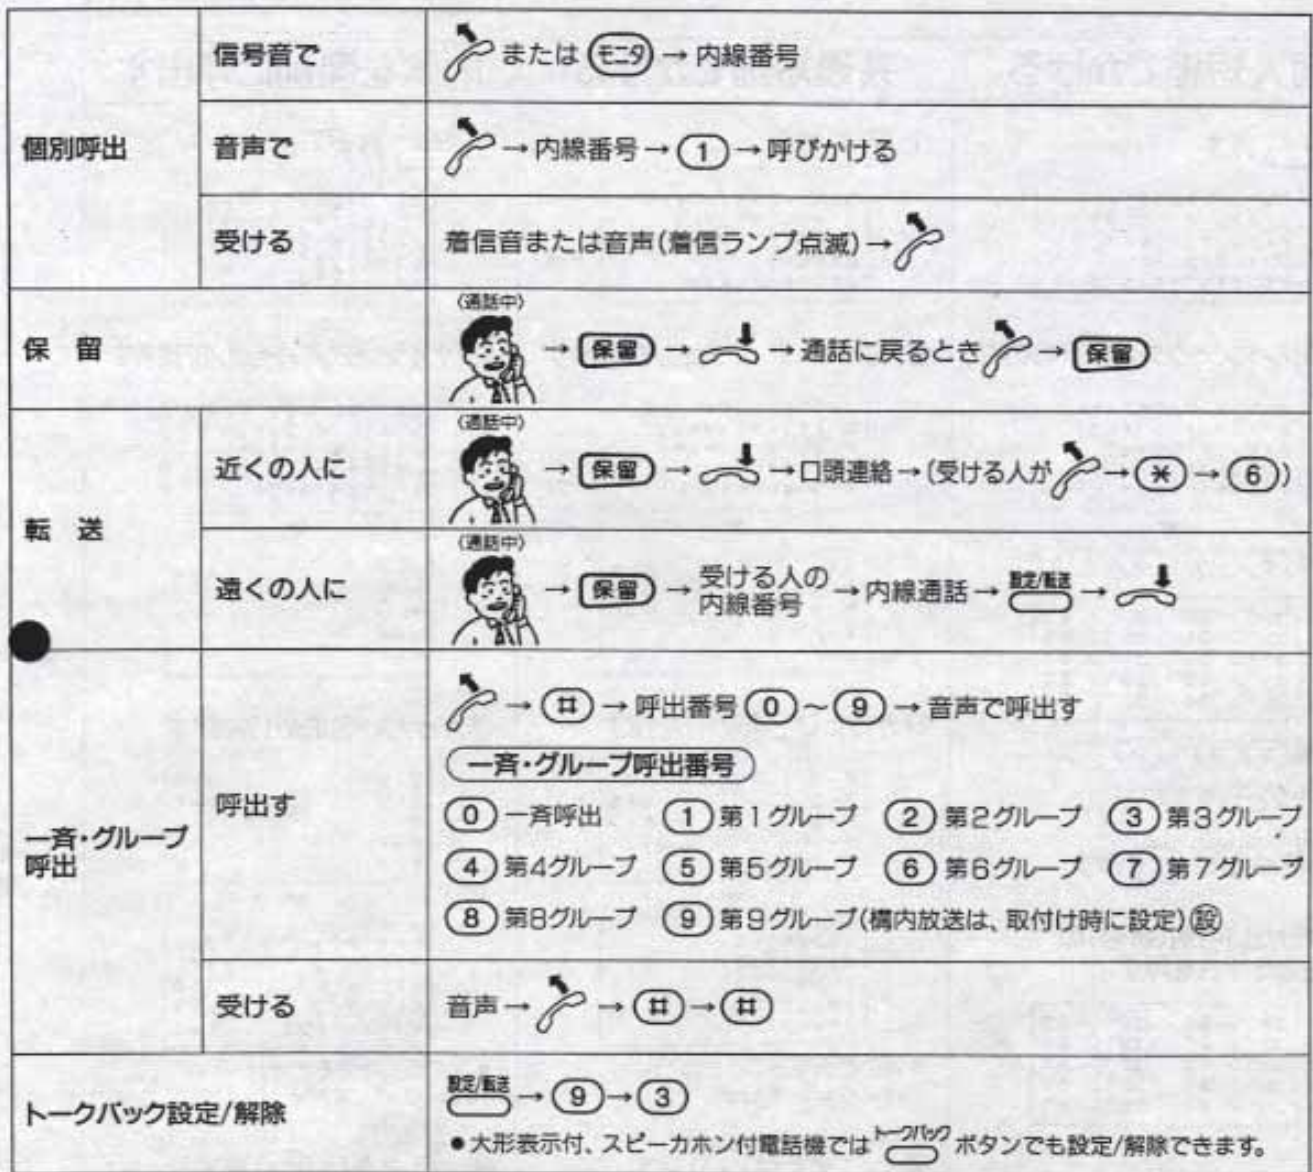 個別呼出
信号音で
または モニタ → 内線番号
音声で
→ 内線番号 → 1 → 呼びかける
受ける
着信音または音声(着信ランプ点滅) →
保 留
(通話中)
→ 保留 → → 通話に戻るとき → 保留
転 送
近くの人に
(通話中)
→ 保留 → → 口頭連絡 → (受ける人が → * → 6)
遠くの人に
(通話中)
→ 保留 → 受ける人の
内線番号 → 内線通話 → 設定/転送 →
一斉・グループ
呼出
呼出す
→ # → 呼出番号 0 ～ 9 → 音声で呼出す
一斉・グループ呼出番号
0 一斉呼出 1 第1グループ 2 第2グループ 3 第3グループ
4 第4グループ 5 第5グループ 6 第6グループ 7 第7グループ
8 第8グループ 9 第9グループ(構内放送は、取付け時に設定) 設
受ける
音声 → → # → #
トークバック設定/解除
設定/転送 → 9 → 3
●大形表示付、スピーカホン付電話機では トークバック ボタンでも設定/解除できます。